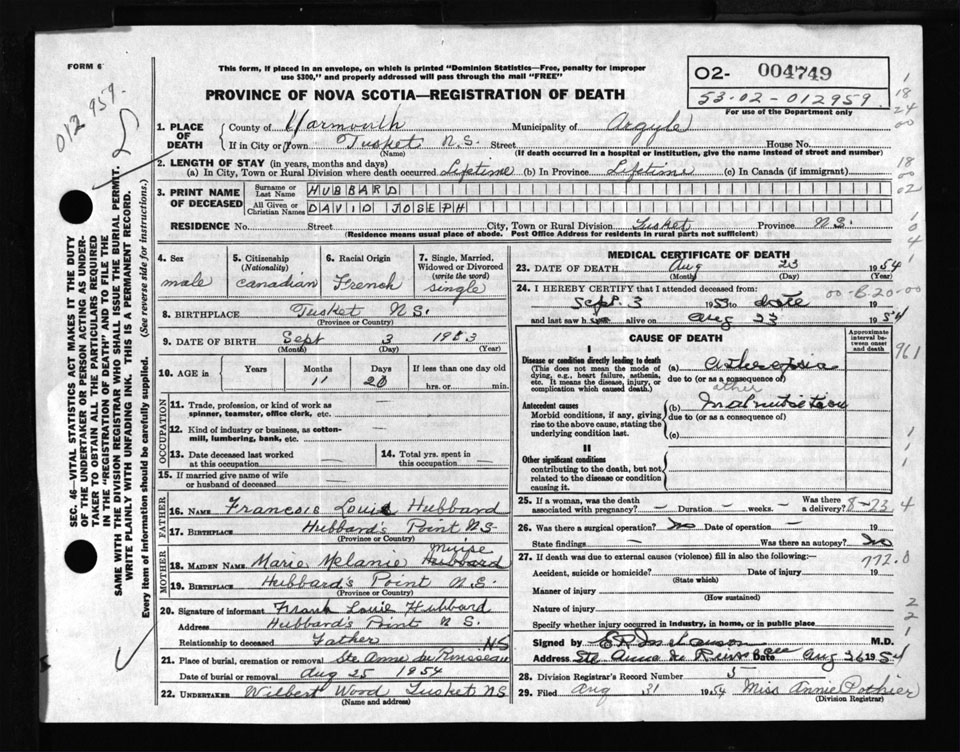 FORM 6
012959.
This form, if placed in an envelope, on which is printed "Dominion Statistics—Free, penalty for improper
use $300," and properly addressed will pass through the mail "FREE"
02- 004749
53-02-012959.
For use of the Department only
PROVINCE OF NOVA SCOTIA—REGISTRATION OF DEATH
1. PLACE OF DEATH
County of Yarmouth Municipality of Argyle
If in City or Town Tusket N.S. Street House No.
(Name) (If death occurred in a hospital or institution, give the name instead of street and number)
2. LENGTH OF STAY (in years, months and days)
(a) In City, Town or Rural Division where death occurred Lifetime (b) In Province Lifetime (c) In Canada (if immigrant)
3. PRINT NAME OF DECEASED
Surname or Last Name HUBBARD
All Given or Christian Names DAVID JOSEPH
RESIDENCE No. Street City, Town or Rural Division Tusket Province N.S.
(Residence means usual place of abode. Post Office Address for residents in rural parts not sufficient)
SEC. 46—VITAL STATISTICS ACT MAKES IT THE DUTY
OF THE UNDERTAKER OR PERSON ACTING AS UNDER-
TAKER TO OBTAIN ALL THE PARTICULARS REQUIRED
IN THE "REGISTRATION OF DEATH" AND TO FILE THE
SAME WITH THE DIVISION REGISTRAR WHO SHALL ISSUE THE BURIAL PERMIT.
WRITE PLAINLY WITH UNFADING INK. THIS IS A PERMANENT RECORD.
Every item of information should be carefully supplied. (See reverse side for instructions.)
4. Sex
male
5. Citizenship
(Nationality)
Canadian
6. Racial Origin
French
7. Single, Married, Widowed or Divorced
(write the word)
single
8. BIRTHPLACE Tusket N.S.
(Province or Country)
9. DATE OF BIRTH Sept 3 1953
(Month) (Day) (Year)
10. AGE in
Years Months Days If less than one day old
11 20 hrs. or min.
OCCUPATION
11. Trade, profession, or kind of work as
spinner, teamster, office clerk, etc. —
12. Kind of industry or business, as cotton-
mill, lumbering, bank, etc. —
13. Date deceased last worked
at this occupation —
14. Total yrs. spent in
this occupation —
15. If married give name of wife
or husband of deceased —
FATHER
16. NAME Francois Louis Hubbard
17. BIRTHPLACE Hubbard's Point N.S.
(Province or Country)
MOTHER
Muise
18. MAIDEN NAME Marie Melanie Hubbard
19. BIRTHPLACE Hubbard's Point N.S.
(Province or Country)
20. Signature of informant Frank Louie Hubbard
Address Hubbard's Point N S.
Relationship to deceased Father
NS
21. Place of burial, cremation or removal Ste Anne du Ruisseau
Date of burial or removal Aug 25 1954
22. UNDERTAKER Wilbert Wood Tusket NS
(Name and address)
MEDICAL CERTIFICATE OF DEATH
23. DATE OF DEATH Aug 23 1954
(Month) (Day) (Year)
24. I HEREBY CERTIFY that I attended deceased from:
Sept. 3 1953 to date 19
00-B-20-00
and last saw h alive on Aug 23 1954
CAUSE OF DEATH
Approximate interval between onset and death
I
Disease or condition directly leading to death
(This does not mean the mode of
dying, e.g., heart failure, asthenia,
etc. It means the disease, injury, or
complication which caused death.)
(a) Athrepsia
due to (or as a consequence of)
Antecedent causes
Morbid conditions, if any, giving
rise to the above cause, stating the
underlying condition last.
other
(b) Malnutrition
due to (or as a consequence of)
(c)
II
Other significant conditions
contributing to the death, but not
related to the disease or condition
causing it.
25. If a woman, was the death
associated with pregnancy? — Duration — weeks. — Was there a delivery?
8-23
26. Was there a surgical operation? No Date of operation — 19
State findings — Was there an autopsy? No
27. If death was due to external causes (violence) fill in also the following:—
772.0
Accident, suicide or homicide? Date of injury 19
(State which)
Manner of injury
(How sustained)
Nature of injury
Specify whether injury occurred in industry, in home, or in public place
Signed by M.D.
Address Ste Anne du Ruisseau Date Aug 26 1954
28. Division Registrar's Record Number 5
29. Filed Aug 31 1954 Miss Annie Pothier
(Division Registrar)
1
18
24
00
18
00
02
1
0
04
961
1
1
1
4
2
2
1